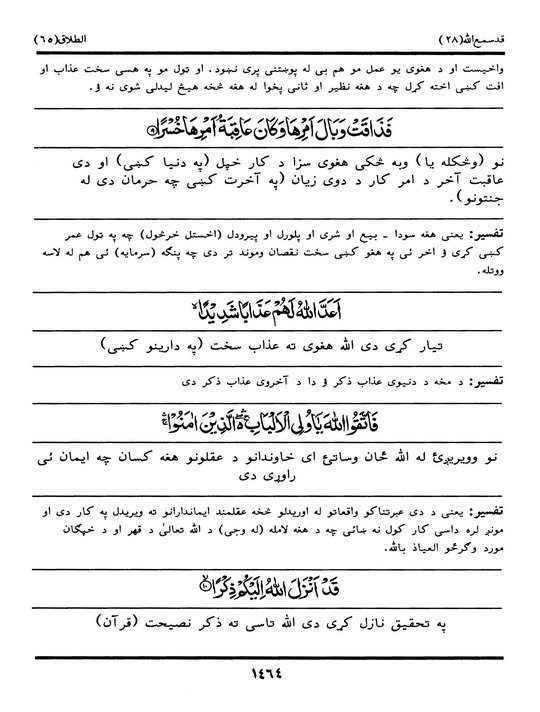 قدسمع الله(۲۸) الطلاق(۶۵)
واخیست او د هغوی یو عمل مو هم بی له پوښتنی پری نښود. او ټول مو په هسی سخت عذاب او
افت کښی اخته کړل چه د هغه نظیر او ثانی پخوا له هغه څخه هیڅ لیدلی شوی نه ؤ.
فَذَاقَتْ وَبَالَ اَمْرِهَا وَكَانَ عَاقِبَةُ اَمْرِهَا خُسْرًا ۝۹
نو (وڅکله یا) وبه څکی هغوی سزا د کار خپل (په دنیا کښی) او دی
عاقبت آخر د امر کار د دوی زیان (په آخرت کښی چه حرمان دی له
جنتونو).
تفسیر: یعنی هغه سودا ـ بیع او شری او پلورل او پیرودل (اخستل خرڅول) چه په ټول عمر
کښی کړی ؤ اخر ئی په هغو کښی سخت نقصان وموند تر دی چه پنګه (سرمایه) ئی هم له لاسه
ووتله.
اَعَدَّ اللّٰهُ لَهُمْ عَذَابًا شَدِيْدًا ۙ
تیار کړی دی الله هغوی ته عذاب سخت (په دارینو کښی)
تفسیر: د مخه د دنیوی عذاب ذکر ؤ دا د آخروی عذاب ذکر دی
فَاتَّقُوا اللّٰهَ يٰۤاُولِى الْاَلْبَابِ ۛۚ الَّذِيْنَ اٰمَنُوْا ۛ
نو وویریږئ له الله ځان وساتئ ای خاوندانو د عقلونو هغه کسان چه ایمان ئی
راوړی دی
تفسیر: یعنی د دی عبرتناکو واقعاتو له اوریدلو څخه عقلمند ایماندارانو ته ویریدل په کار دی او
مونږ لره داسی کار کول نه ښائی چه د هغه لامله (له وجی) د الله تعالیٰ د قهر او د خپګان
مورد وګرځو العیاذ بالله.
قَدْ اَنْزَلَ اللّٰهُ اِلَيْكُمْ ذِكْرًا ۝۱۰
په تحقیق نازل کړی دی الله تاسی ته ذکر نصیحت (قرآن)
۱۴۶۴